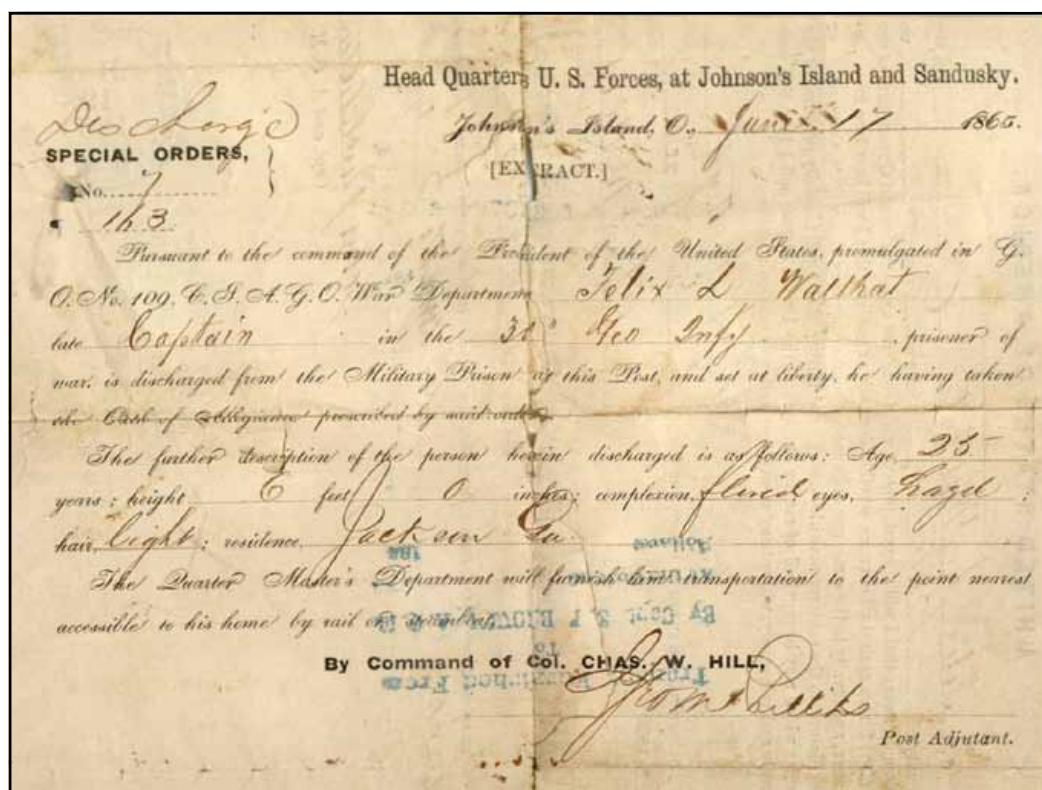 Head Quarters U. S. Forces, at Johnson's Island and Sandusky.
Discharge
Johnson's Island, O., June 17 1865.
SPECIAL ORDERS,
[EXTRACT.]
No.
163
Pursuant to the command of the President of the United States, promulgated in G.
O. No. 109, C. S. A. G. O. War Department Felix L
late Captain in the Geo Infy prisoner of
war, is discharged from the Military Prison at this Post, and set at liberty, he having taken
the Oath of Allegiance prescribed by said order.
The further description of the person herein discharged is as follows: Age, 25
years; height 6 feet 0 inches; complexion, florid eyes, hazel;
hair, light; residence, Jackson Ga.
The Quarter Master's Department will furnish him transportation to the point nearest
accessible to his home by rail or steamboat.
By Command of Col. CHAS. W. HILL,
Post Adjutant.